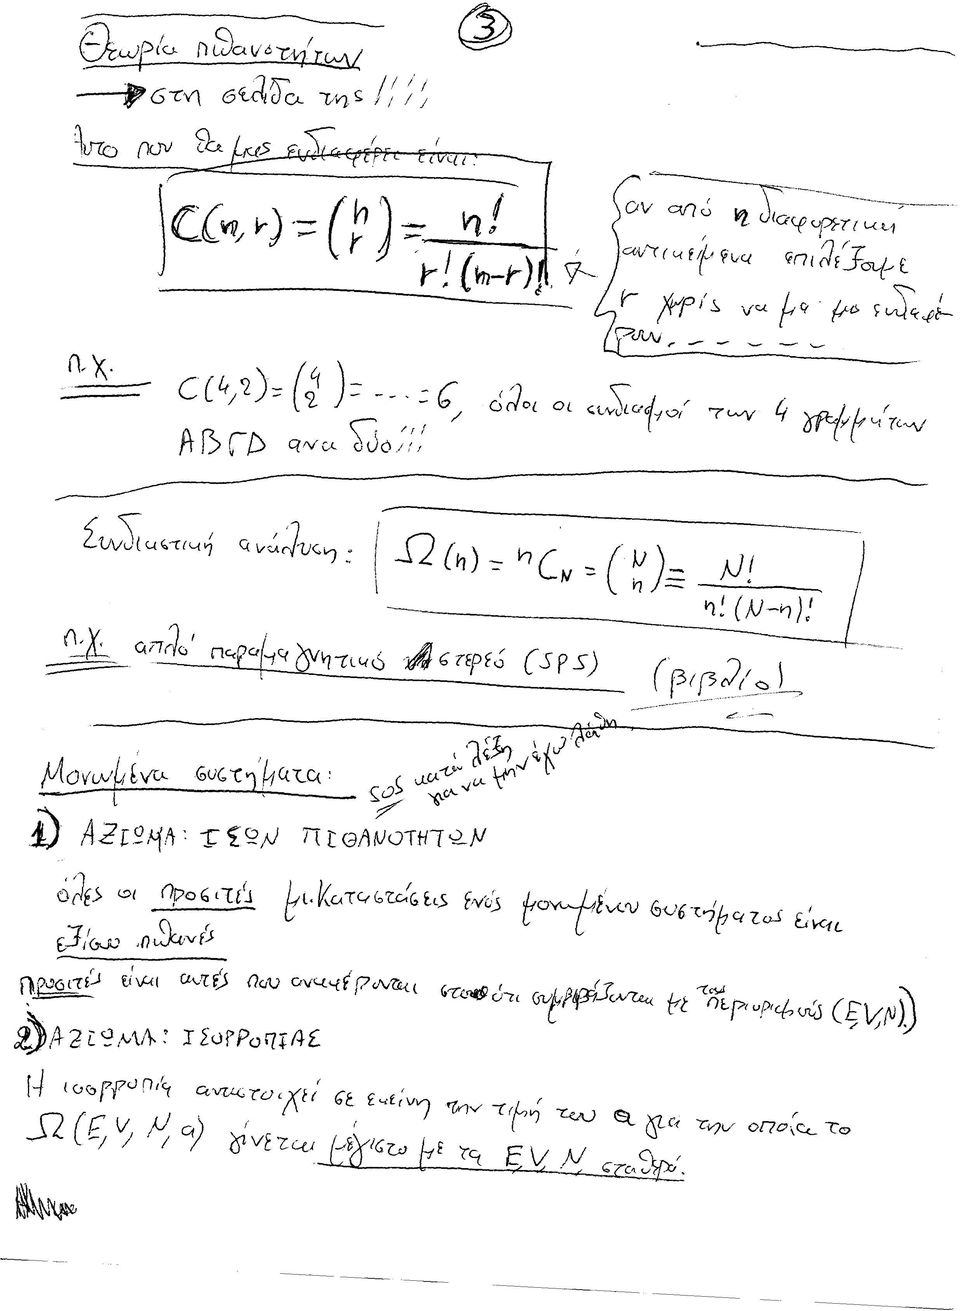 3
Θεωρία πιθανοτήτων
→ στη σελίδα της !!!!
Αυτο που θα μας ενδιαφέρει είναι:
C(n, r) = (n r) = n! / r! (n-r)!
αν από n διαφορετικά
αντικείμενα επιλέξουμε
r χωρίς να μα ενδιαφέ-
ρουν. - - - - - -
π.χ. C(4,2) = (4 2) = .... = 6, όλοι οι συνδιασμοί των 4 γραμμάτων
ΑΒΓD ανα δύο!!!
Συνδιαστική ανάλυση: Ω(n) = ⁿC_N = (N n) ≡ N! / n! (N-n)!
π.χ. απλό παραμαγνητικό στερεό (SPS) (βιβλίο)
Μονωμένα συστήματα: SOS κατά λέξη
για να μην έχω λάθη
1) ΑΞΙΩΜΑ: ΙΣΩΝ ΠΙΘΑΝΟΤΗΤΩΝ
όλες οι προσιτές μι.καταστάσεις ενός μονωμένου συστήματος είναι
εξίσου πιθανές
προσιτές είναι αυτές που αναφέρονται στο ότι συμβιβάζονται με τους περιορισμούς (E,V,N).)
2) ΑΞΙΩΜΑ: ΙΣΟΡΡΟΠΙΑΣ
Η ισορροπία αντιστοιχεί σε εκείνη την τιμή του a για την οποία το
Ω(E, V, N, a) γίνεται μέγιστο με τα E, V, N, σταθερά.